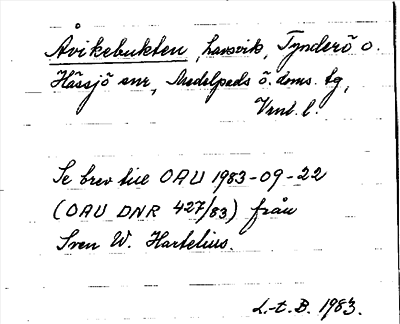 Åvikebukten, havsvik, Tynderö o.
Hässjö snr, Medelpads ö. doms. tg,
Vrnl. l.
Se brev till OAU 1983-09-22
(OAU DNR 427/83) från
Sven W. Hartelius.
L.-t. B. 1983.